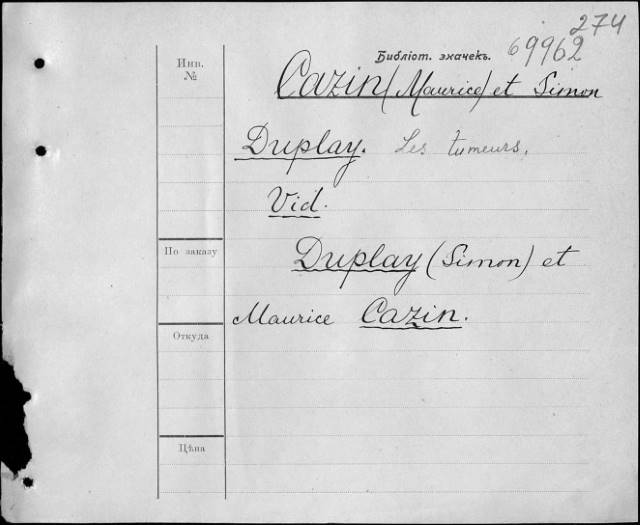 274
69962
Инв.
№
Библіот. значекъ.
Cazin (Maurice) et Simon
Duplay. Les tumeurs.
Vid.
По заказу
Duplay (Simon) et
Maurice Cazin.
Откуда
Цѣна